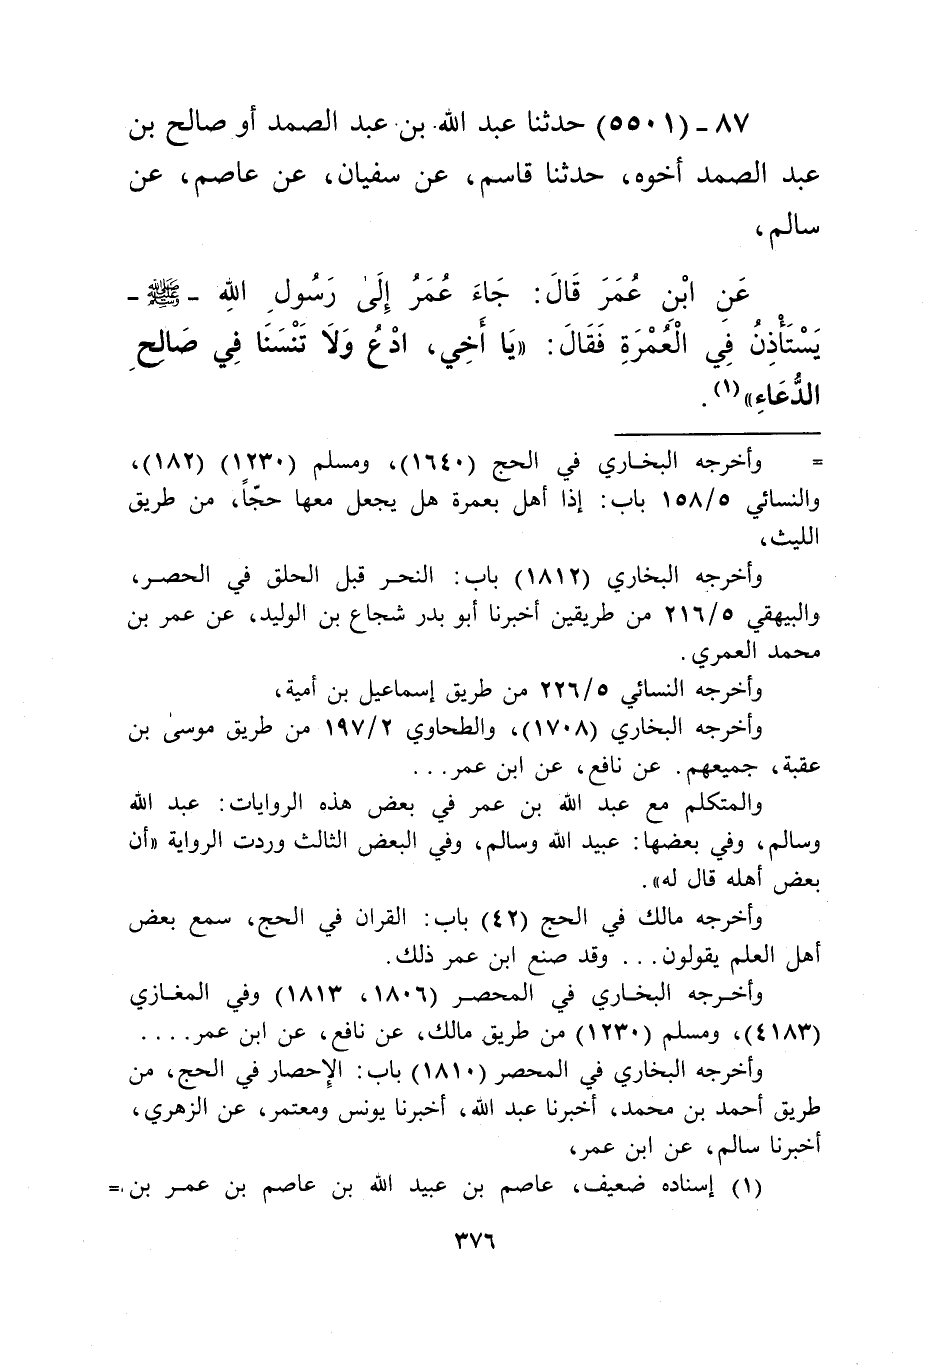 ٨٧ - (٥٥٠١) حدثنا عبد الله بن عبد الصمد أو صالح بن
عبد الصمد أخوه، حدثنا قاسم، عن سفيان، عن عاصم، عن
سالم،
عَنِ ابْنِ عُمَرَ قَالَ: جَاءَ عُمَرُ إِلَىٰ رَسُولِ اللهِ - ﷺ -
يَسْتَأْذِنُ فِي الْعُمْرَةِ فَقَالَ: «يَا أَخِي، ادْعُ وَلَا تَنْسَنَا فِي صَالِحِ
الدُّعَاءِ»(١).
= وأخرجه البخاري في الحج (١٦٤٠)، ومسلم (١٢٣٠) (١٨٢)،
والنسائي ١٥٨/٥ باب: إذا أهل بعمرة هل يجعل معها حجّاً، من طريق
الليث،
وأخرجه البخاري (١٨١٢) باب: النحر قبل الحلق في الحصر،
والبيهقي ٢١٦/٥ من طريقين أخبرنا أبو بدر شجاع بن الوليد، عن عمر بن
محمد العمري.
وأخرجه النسائي ٢٢٦/٥ من طريق إسماعيل بن أمية،
وأخرجه البخاري (١٧٠٨)، والطحاوي ١٩٧/٢ من طريق موسىٰ بن
عقبة، جميعهم. عن نافع، عن ابن عمر...
والمتكلم مع عبد الله بن عمر في بعض هذه الروايات: عبد الله
وسالم، وفي بعضها: عبيد الله وسالم، وفي البعض الثالث وردت الرواية «أن
بعض أهله قال له».
وأخرجه مالك في الحج (٤٢) باب: القران في الحج، سمع بعض
أهل العلم يقولون... وقد صنع ابن عمر ذلك.
وأخرجه البخاري في المحصر (١٨٠٦، ١٨١٣) وفي المغازي
(٤١٨٣)، ومسلم (١٢٣٠) من طريق مالك، عن نافع، عن ابن عمر....
وأخرجه البخاري في المحصر (١٨١٠) باب: الإحصار في الحج، من
طريق أحمد بن محمد، أخبرنا عبد الله، أخبرنا يونس ومعتمر، عن الزهري،
أخبرنا سالم، عن ابن عمر،
(١) إسناده ضعيف، عاصم بن عبيد الله بن عاصم بن عمر بن =
٣٧٦